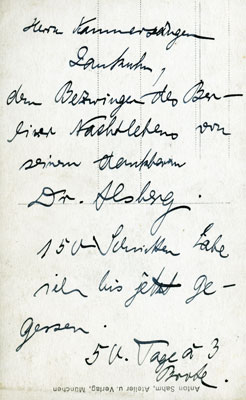 Herrn Kammersänger
dem Bezwinger des Ber-
liner Nachtlebens von
seinem dankbaren
Dr. Alsberg.
150 Schnitten habe
ich bis jetzt ge-
gessen.
50 Tage à 3
Brote.
Anton Sahm, Atelier u. Verlag, München